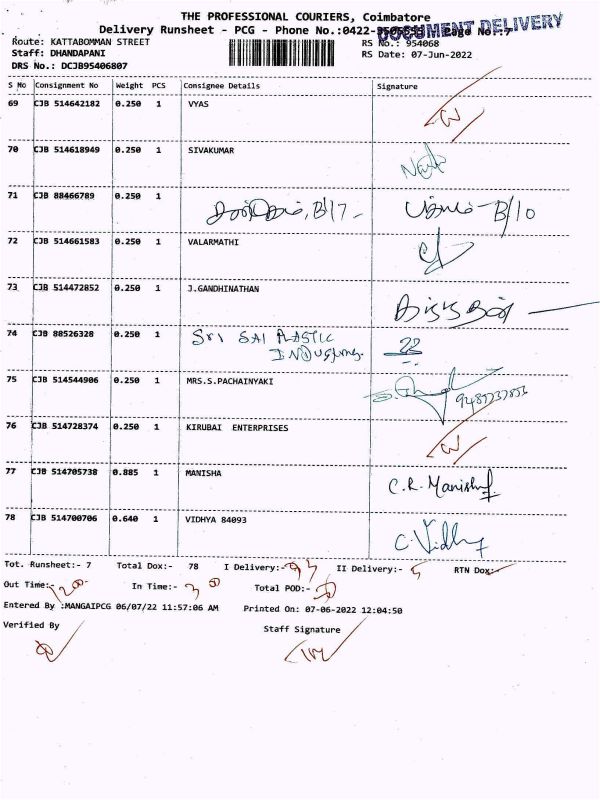 THE PROFESSIONAL COURIERS, Coimbatore
Delivery Runsheet - PCG - Phone No.:0422- Page No.:7
DOCUMENT DELIVERY
Route: KATTABOMMAN STREET
RS No.: 954068
Staff: DHANDAPANI
RS Date: 07-Jun-2022
DRS No.: DCJB95406807
S No Consignment No Weight PCS Consignee Details Signature
69 CJB 514642182 0.250 1 VYAS
70 CJB 514618949 0.250 1 SIVAKUMAR
71 CJB 88466789 0.250 1 B/17 B/10
72 CJB 514661583 0.250 1 VALARMATHI
73 CJB 514472852 0.250 1 J.GANDHINATHAN
74 CJB 88526328 0.250 1 Sri SAI PLASTIC
75 CJB 514544906 0.250 1 MRS.S.PACHAINYAKI
76 CJB 514728374 0.250 1 KIRUBAI ENTERPRISES
77 CJB 514705738 0.885 1 MANISHA C.R. Manisha
78 CJB 514700706 0.640 1 VIDHYA 84093 C. Vidhya
Tot. Runsheet:- 7 Total Dox:- 78 I Delivery:- II Delivery:- 5 RTN Dox:-
Out Time:- 1200 In Time:- 300 Total POD:-
Entered By :MANGAIPCG 06/07/22 11:57:06 AM Printed On: 07-06-2022 12:04:50
Verified By Staff Signature